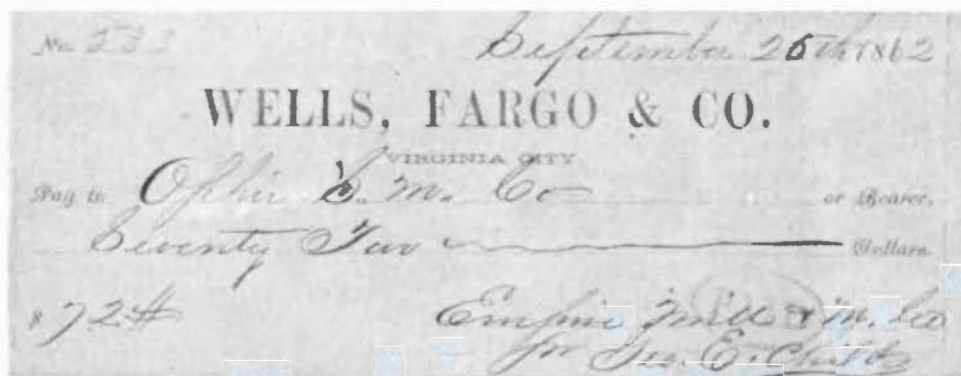 No. 233 September 26th 1862
WELLS, FARGO & CO.
VIRGINIA CITY
Pay to Ophir S. M. Co or Bearer.
Seventy Two Dollars.
$72 Empire Mill & M. Co
for Geo. E.